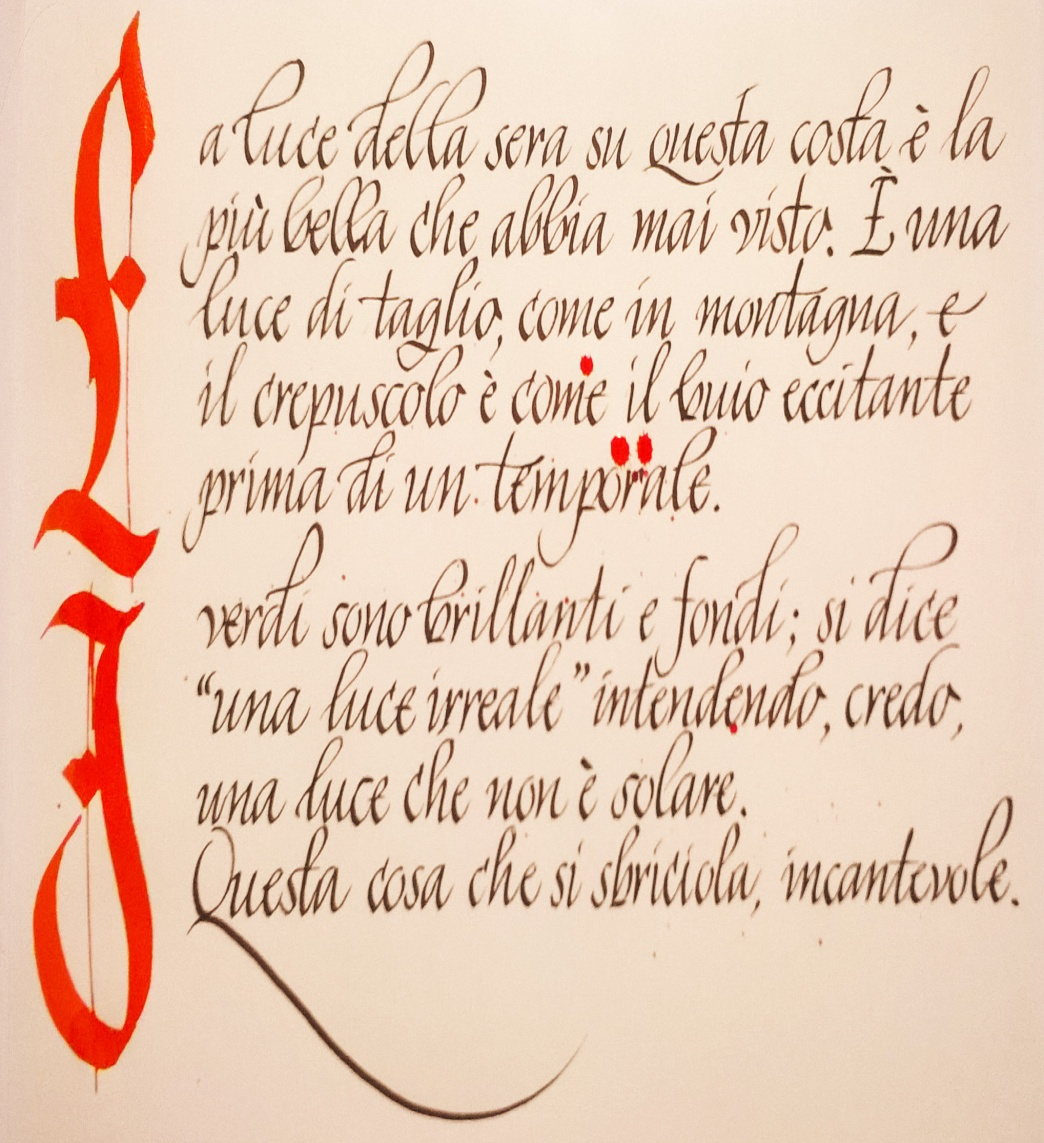 La luce della sera su questa costa è la
più bella che abbia mai visto. È una
luce di taglio, come in montagna, e
il crepuscolo è come il buio eccitante
prima di un temporale.
I verdi sono brillanti e fondi; si dice
“una luce irreale” intendendo, credo,
una luce che non è solare.
Questa cosa che si sbriciola, incantevole.